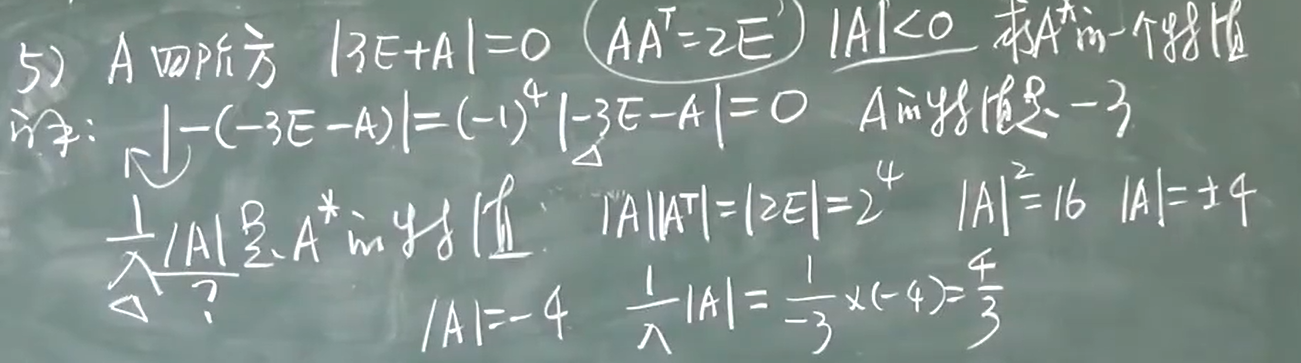 5) A四阶方 |3E+A|=0 (AAᵀ=2E) |A|<0 求A*的一个特值
证: |-(-3E-A)|=(-1)⁴|-3E-A|=0 A的特值是-3
1/λ|A|是A*的特值. |A||Aᵀ|=|2E|=2⁴ |A|²=16 |A|=±4
?
|A|=-4 1/λ|A|=1/-3×(-4)=4/3